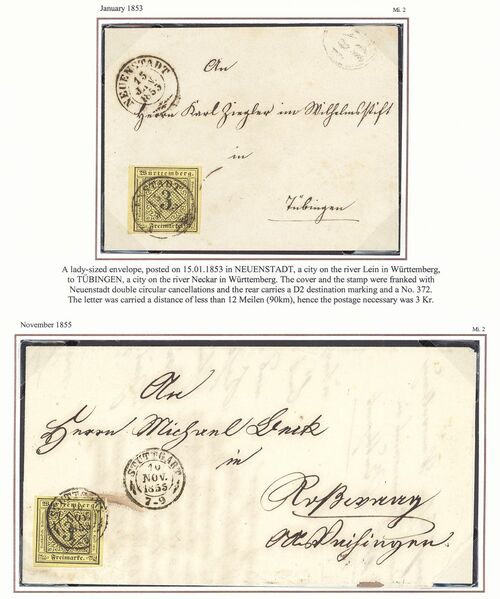 January 1853
Mi. 2
NEUENSTADT
15
JAN.
1853
An
Herrn Karl Ziegler im Wilhelmsstift
in
Tübingen
Württemberg.
3
Freimarke.
A lady-sized envelope, posted on 15.01.1853 in NEUENSTADT, a city on the river Lein in Württemberg,
to TÜBINGEN, a city on the river Neckar in Württemberg. The cover and the stamp were franked with
Neuenstadt double circular cancellations and the rear carries a D2 destination marking and a No. 372.
The letter was carried a distance of less than 12 Meilen (90km), hence the postage necessary was 3 Kr.
November 1855
Mi. 2
An
Herrn Michael Denk
in
STUTTGART
10
NOV.
1855
7-9
Roßwaag
OA. Vaihingen.
Württemberg
Freimarke.